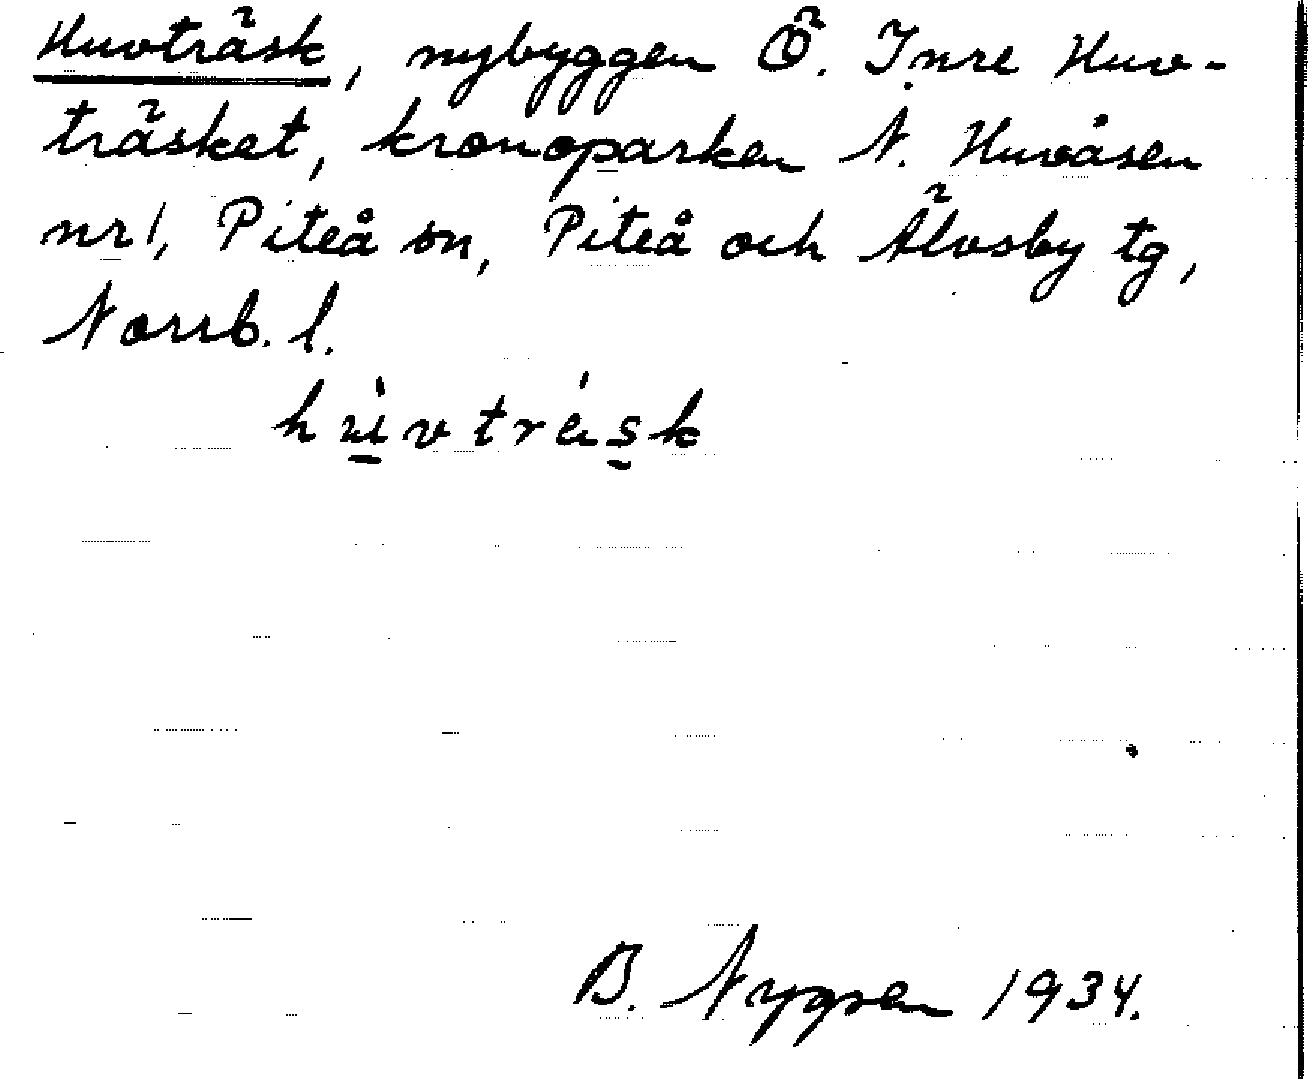 Huvträsk, nybyggen Ö. Inre Huv-
träsket, kronoparken N. Huvåsen
nr 1, Piteå sn, Piteå och Älvsby tg,
Norrb. l.
hù̲vtrés̲k
B. Nygren 1934.